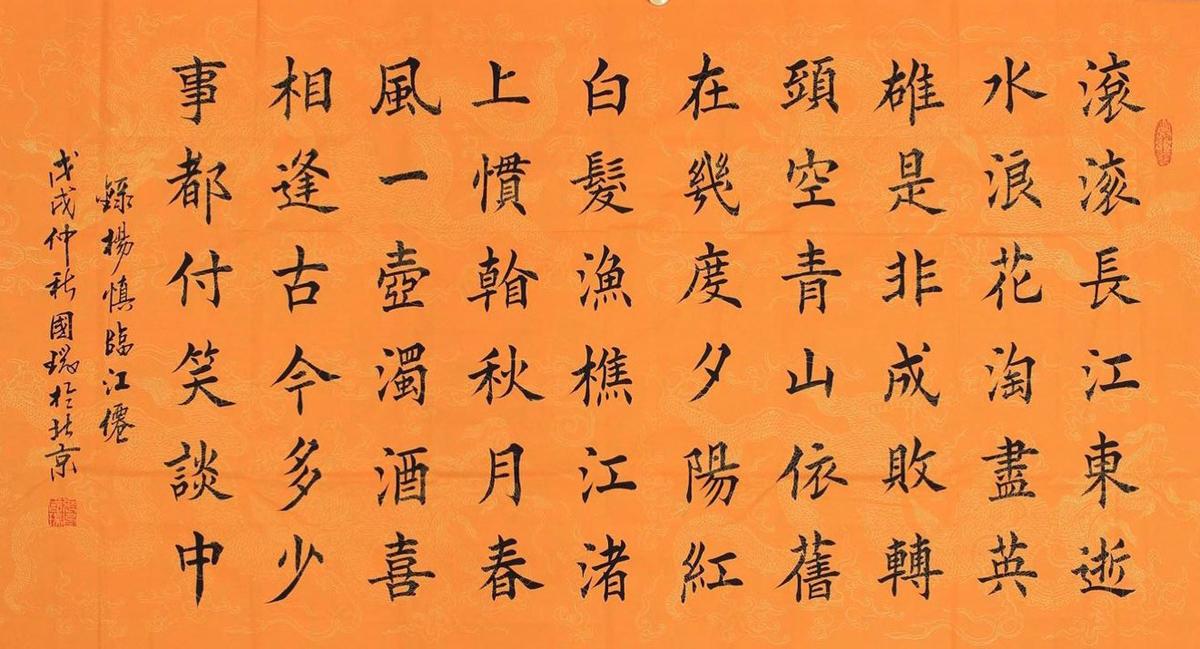 滾滾長江東逝
水浪花淘盡英
雄是非成敗轉
頭空青山依舊
在幾度夕陽紅
白髮漁樵江渚
上慣秋月春
風一壺濁酒喜
相逢古今多少
事都付笑談中
錄楊慎臨江僊
戊戌仲秋國於北京